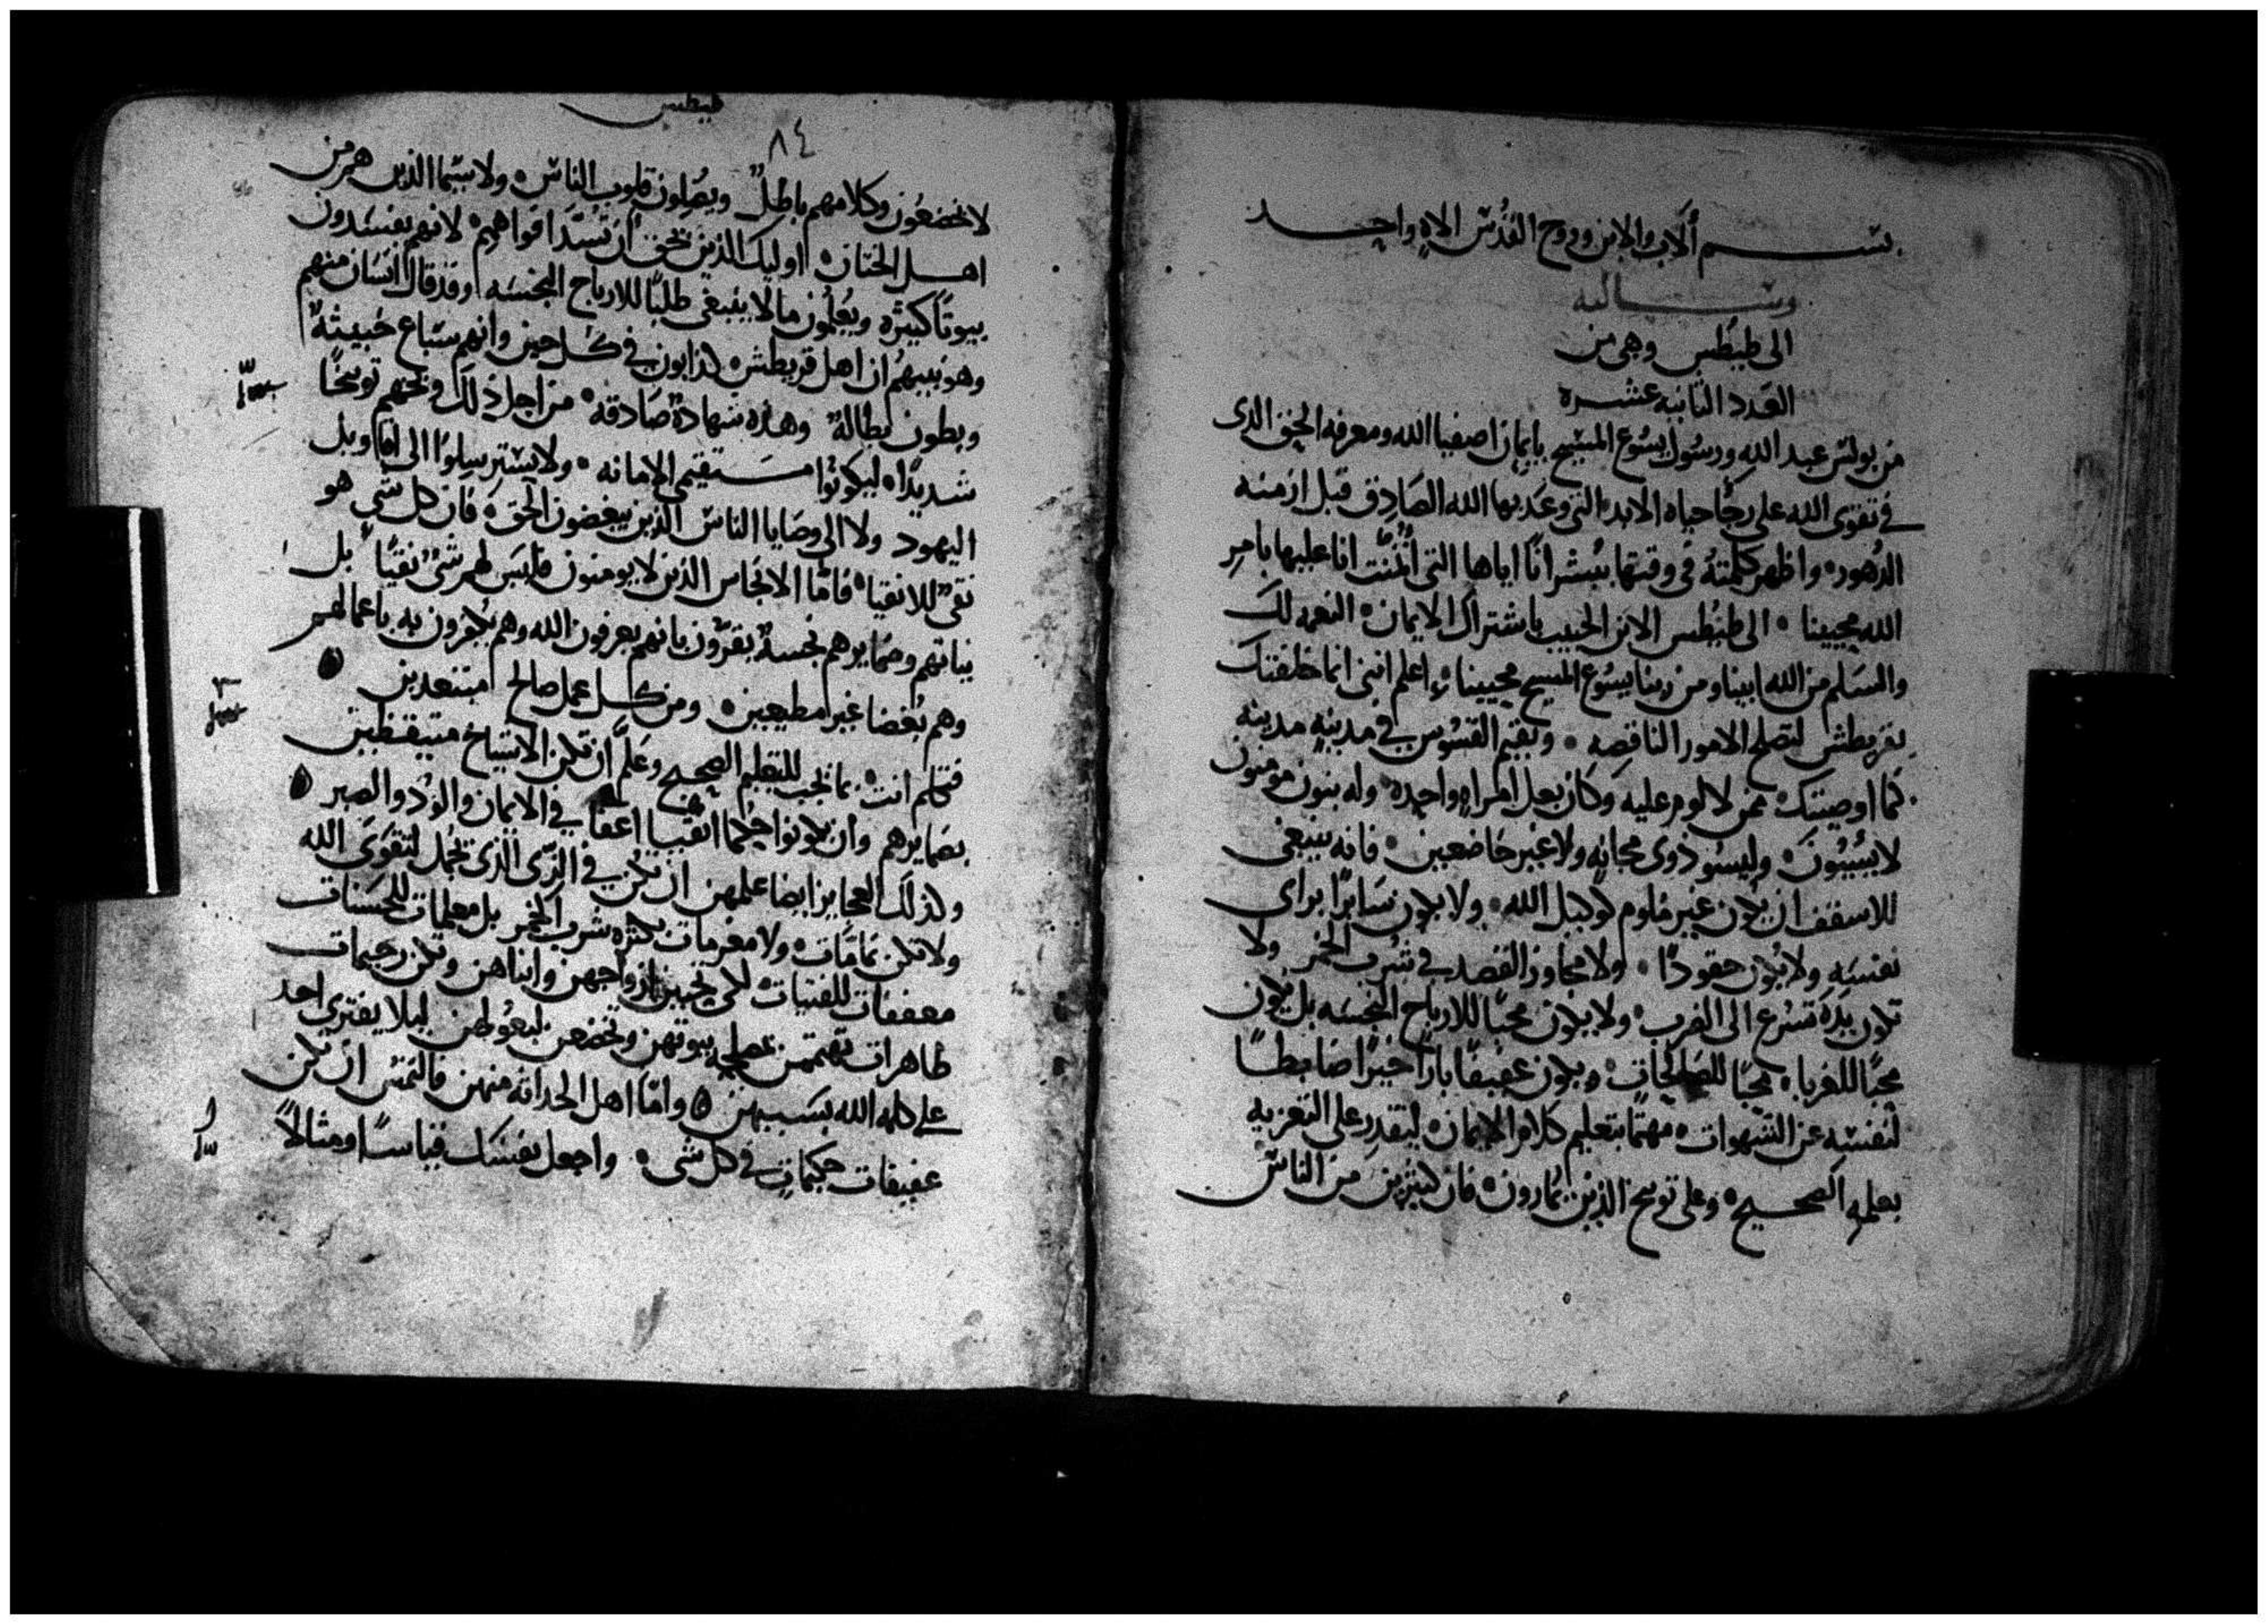 بسم الاب والابن وروح القدس الاه واحد
رسالته
الى طيطس وهى من
العدد الثانيه عشره
من بولس عبد الله ورسول يسوع المسيح بايمان اصفيا الله ومعرفه الحق الذى
فى تقوى الله على رجا حياه الابد التى وعد بها الله الصادق قبل ازمنه
الدهور واظهر كلمته فى وقتها ببشرانا اياها التى اتمنت انا عليها بامر
الله محيينا الى طيطس الابن الحبيب باشتراك الايمان النعمه لك
والسلم من الله ابينا ومن ربنا يسوع المسيح محيينا اعلم اننى انما خلفتك
بقريطش لتصلح الامور الناقصه وتقيم القسوس فى مدينه مدينه
كما اوصيتك ممن لا لوم عليه وكان بعل امراه واحده وله بنون مومنون
لا يسبون وليسو ذوى مجانه ولا غير خاضعين فانه ينبغى
للاسقف ان يكون غير ملوم كوكيل الله ولا يكون سايرا براى
نفسه ولا يكون حقودا ولا مجاوز القصد فى شرب الخمر ولا
تكون يده تسرع الى الضرب ولا يكون محبا للارباح النجسه بل يكون
محبا للغربا محبا للصالحات ويكون عفيفا بارا خيرا ضابطا
لنفسه عن الشهوات مهتما بتعليم كلام الايمان ليقدر على التعزيه
بعلمه الصحيح وعلى توبيخ الذين يمارون فان كثيرين من الناس
طيطس
٨٤
لا يخضعون وكلامهم باطل ويضلون قلوب الناس ولا سيما الذين هم من
اهل الختان اوليك الذين يحق ان تسد افواههم لانهم يفسدون
بيوتا كثيره ويعلمون ما لا ينبغى طلبا للارباح النجسه وقد قال انسان منهم
وهو نبيهم ان اهل قريطش كذابون فى كل حين وانهم سباع خبيثه
وبطون بطاله وهذه شهاده صادقه من اجل ذلك وبخهم توبيخا
شديدا ليكونوا مستقيمى الامانه ولا يسترسلوا الى اقاويل
اليهود ولا الى وصايا الناس الذين يبغضون الحق فان كل شى هو
نقى للانقيا فاما الانجاس الذين لا يومنون فليس لهم شى نقيا بل
نياتهم وضمايرهم نجسه يقرون بانهم يعرفون الله وهم يكفرون به باعمالهم
وهم بغضا غير مطيعين ومن كل عمل صالح مبتعدين
فتكلم انت بما يجب للتعليم الصحيح وعلم ان تكن الاشياخ متيقظين
بضمايرهم وان يكونوا حكما اتقيا اعفا فى الايمان والود والصبر
وكذلك العجايز ايضا علمهن ان تكن فى الزى الذى يجمل لتقوى الله
ولا تكن نمامات ولا مغرمات بكثره شرب الخمر بل معلمات للحسنات
معففات للفتيات لكى يحببن ازواجهن وابناهن وتكن رحيمات
طاهرات تهتممن بمصلحه بيوتهن وتخضعن لبعولهن ليلا يفترى احد
على كلمه الله بسببهن واما اهل الحداثه منهن فالتمس ان تكن
عفيفات حكيمات فى كل شى واجعل نفسك قياسا ومثالا